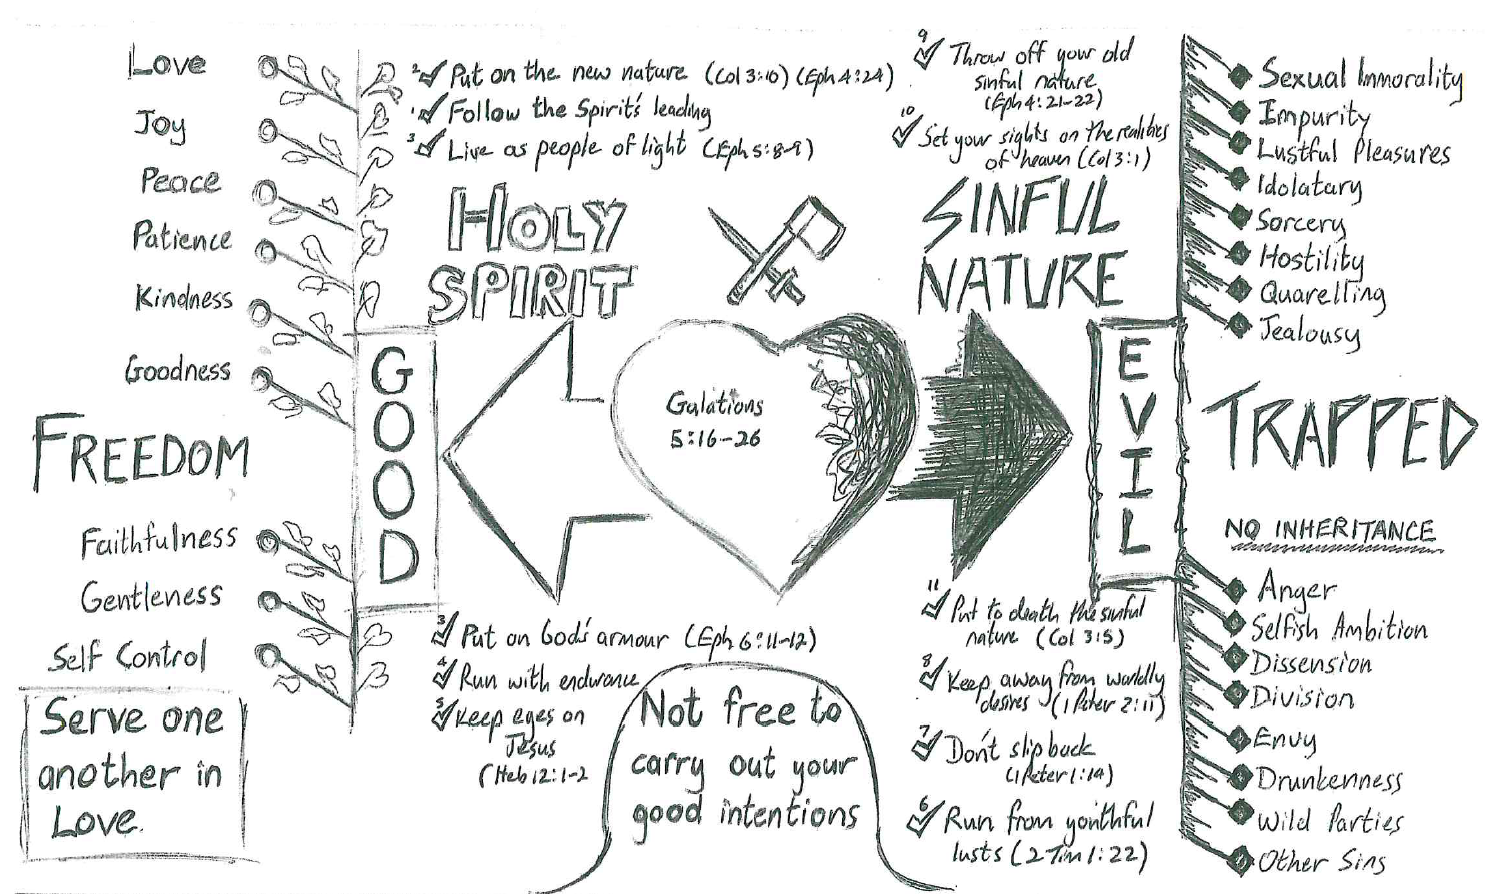 Love
Joy
Peace
Patience
Kindness
Goodness
FREEDOM
Faithfulness
Gentleness
Self Control
Serve one
another in
Love.
2 Put on the new nature (Col 3:10) (Eph 4:24)
1 Follow the Spirit's leading
3 Live as people of light (Eph 5:8-9)
HOLY
SPIRIT
GOOD
3 Put on God's armour (Eph 6:11-12)
4 Run with endurance
5 Keep eyes on
Jesus
(Heb 12:1-2
Galations
5:16-26
Not free to
carry out your
good intentions
9 Throw off your old
sinful nature
(Eph 4:21-22)
10 Set your sights on the realities
of heaven (Col 3:1)
SINFUL
NATURE
EVIL
11 Put to death the sinful
nature (Col 3:5)
8 Keep away from worldly
desires (1 Peter 2:11)
7 Don't slip back
(1 Peter 1:14)
6 Run from youthful
lusts (2 Tim 1:22)
Sexual Immorality
Impurity
Lustful Pleasures
Idolatary
Sorcery
Hostility
Quarelling
Jealousy
TRAPPED
NO INHERITANCE
Anger
Selfish Ambition
Dissension
Division
Envy
Drunkenness
Wild Parties
Other Sins